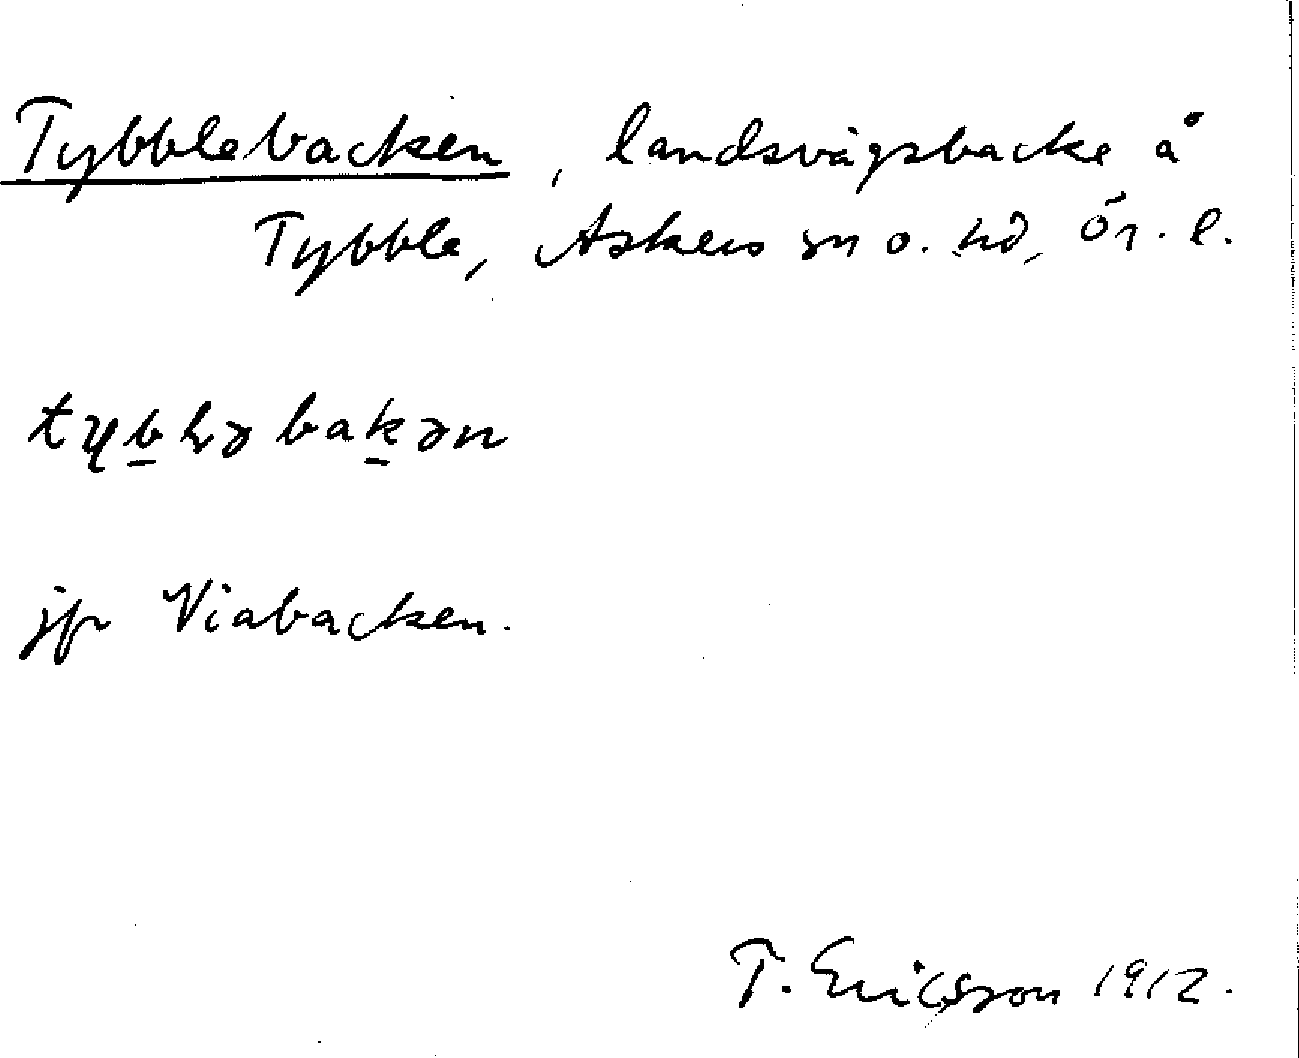 Tybblebacken, landsvägsbacke å
Tybble, Askers sn o. hd, Ör. l.
tyb̲lləbak̲ən
jfr Viabacken.
T. Ericsson 1912.